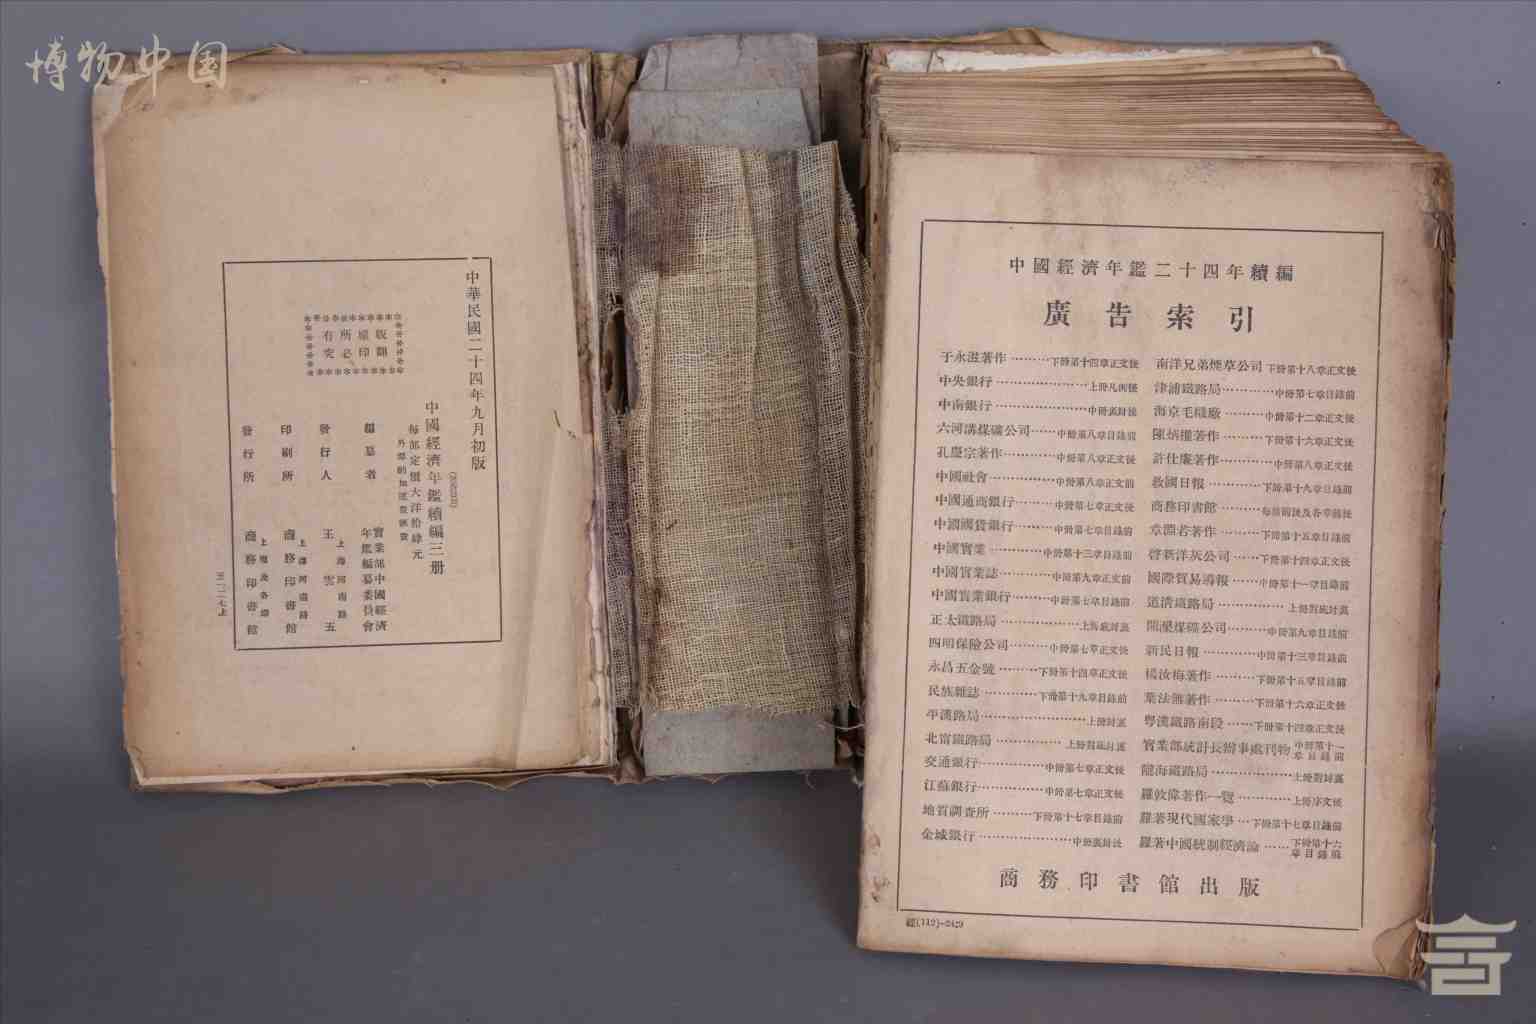 博物中国
中華民國二十四年九月初版
中國經濟年鑑續編三册
每部定價大洋拾肆元
外埠酌加運費匯費
版權所有
翻印必究
編纂者
實業部中國經濟
年鑑編纂委員會
發行人
王雲五
上海河南路
印刷所
商務印書館
上海河南路
發行所
商務印書館
上海及各埠
中國經濟年鑑二十四年續編
廣告索引
于永滋著作………下冊第十四章正文後
中央銀行………上冊凡例後
中南銀行………中冊裏封後
六河溝煤礦公司……中冊第八章目錄前
孔慶宗著作………中冊第八章正文後
中國社會………中冊第八章正文前
中國通商銀行………中冊第七章正文後
中國國貨銀行………中冊第七章目錄前
中國實業………中冊第十三章目錄前
中國實業誌………中冊第九章正文前
中國實業銀行………中冊第七章目錄前
正太鐵路局………上冊底封裏
四明保險公司………中冊第七章正文後
永昌五金號………下冊第十四章正文後
民族雜誌………下冊第十九章目錄前
平漢路局………上冊封裏
北甯鐵路局………上冊對底封裏
交通銀行………中冊第七章正文後
江蘇銀行………中冊第七章正文後
地質調查所………下冊第十七章目錄前
金城銀行………中冊裏封後
南洋兄弟煙草公司 下冊第十八章正文後
津浦鐵路局………中冊第七章目錄前
海京毛織廠………中冊第十二章正文後
陳炳權著作………下冊第十六章正文後
許仕廉著作………中冊第八章正文後
救國日報………下冊第十九章目錄前
商務印書館………每冊前後及各章前後
章淵若著作………下冊第十五章目錄前
啓新洋灰公司………下冊第十四章正文後
國際貿易導報………中冊第十一章目錄前
道清鐵路局………上冊對底封裏
開灤煤礦公司………中冊第九章目錄前
新民日報………中冊第十三章目錄前
楊汝梅著作………下冊第十五章目錄前
葉法無著作………下冊第十六章正文後
粵漢鐵路南段……下冊第十四章正文後
實業部統計長辦事處刊物 中冊第十一章目錄前
隴海鐵路局………上冊對封裏
羅敦偉著作一覽………上冊序文後
羅著現代國家學…下冊第十七章目錄前
羅著中國統制經濟論……下冊第十六章目錄前
商務印書館出版